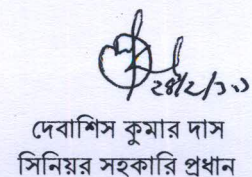 দেবাশিস কুমার দাস
সিনিয়র সহকারি প্রধান